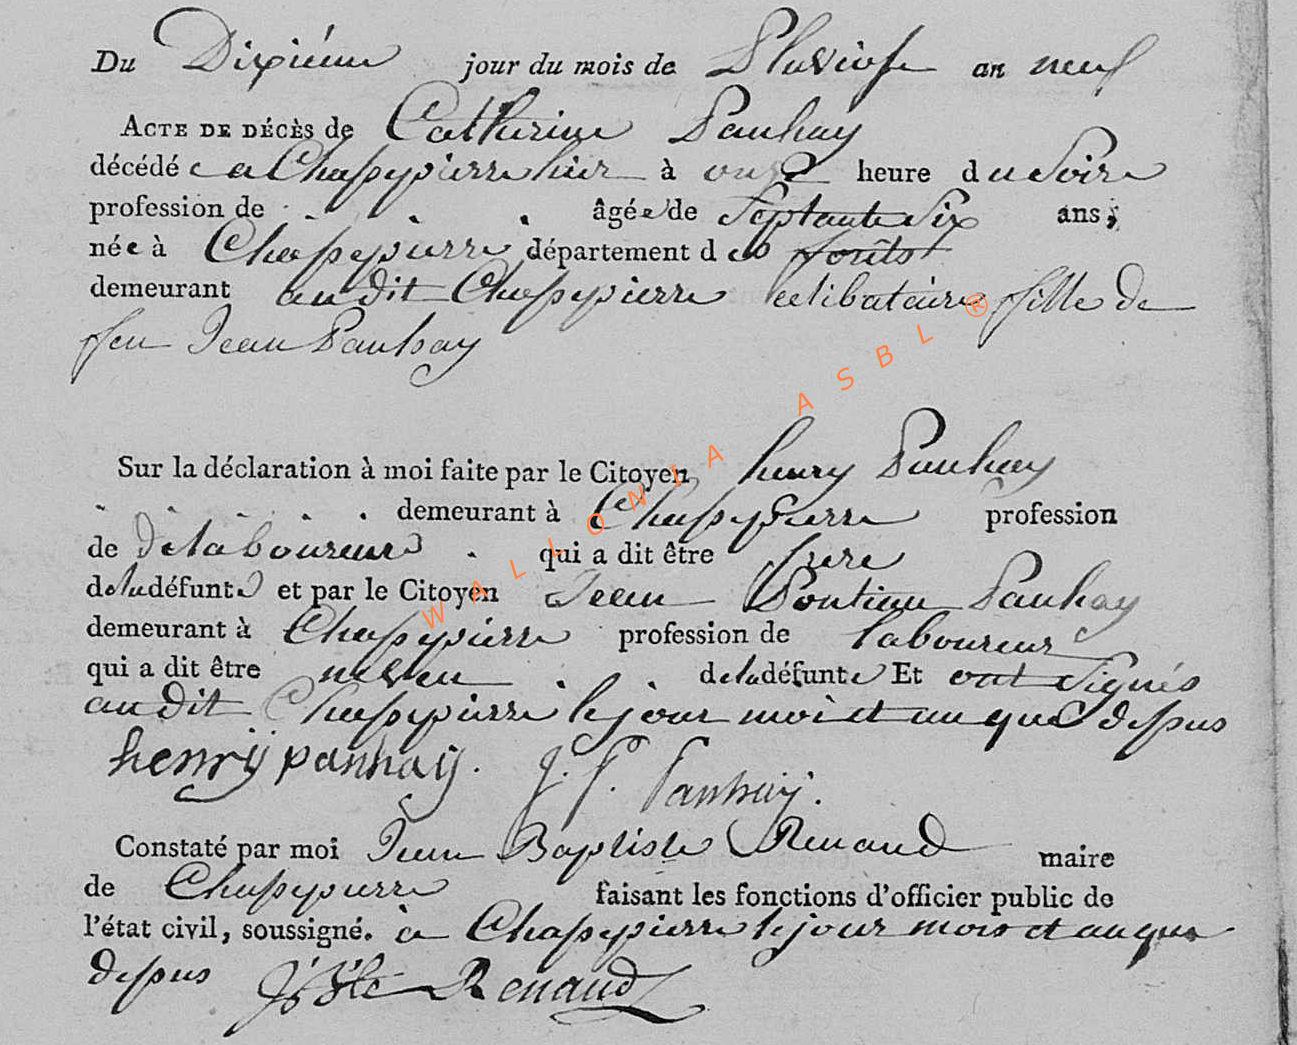 Du Dixiéme jour du mois de Pluviose an neuf
ACTE DE DÉCÈS de Catherine Panhay
décédée a Chassepierre hier à onze heure du Soire
profession de . . . âgée de Septante Six ans;
née à Chassepierre département des forêts
demeurant audit Chassepierre celibataire fille de
feu Jean Panhay
Sur la déclaration à moi faite par le Citoyen henry Panhay
. . . . . demeurant à Chassepierre profession
de De laboureur . qui a dit être frere
de la défunte et par le Citoyen Jean Pontian Panhay
demeurant à Chassepierre profession de laboureur
qui a dit être neveu . . de la défunte Et ont Signés
audit Chassepierre le jour moi et an que dessus
henrÿ panhaÿ. J. P. Panhaÿ.
Constaté par moi Jean Baptiste Renaud maire
de Chassepierre faisant les fonctions d'officier public de
l'état civil, soussigné. à Chassepierre le jour mois et an que
dessus J: B:te Renaud
WALLONIA ASBL ®